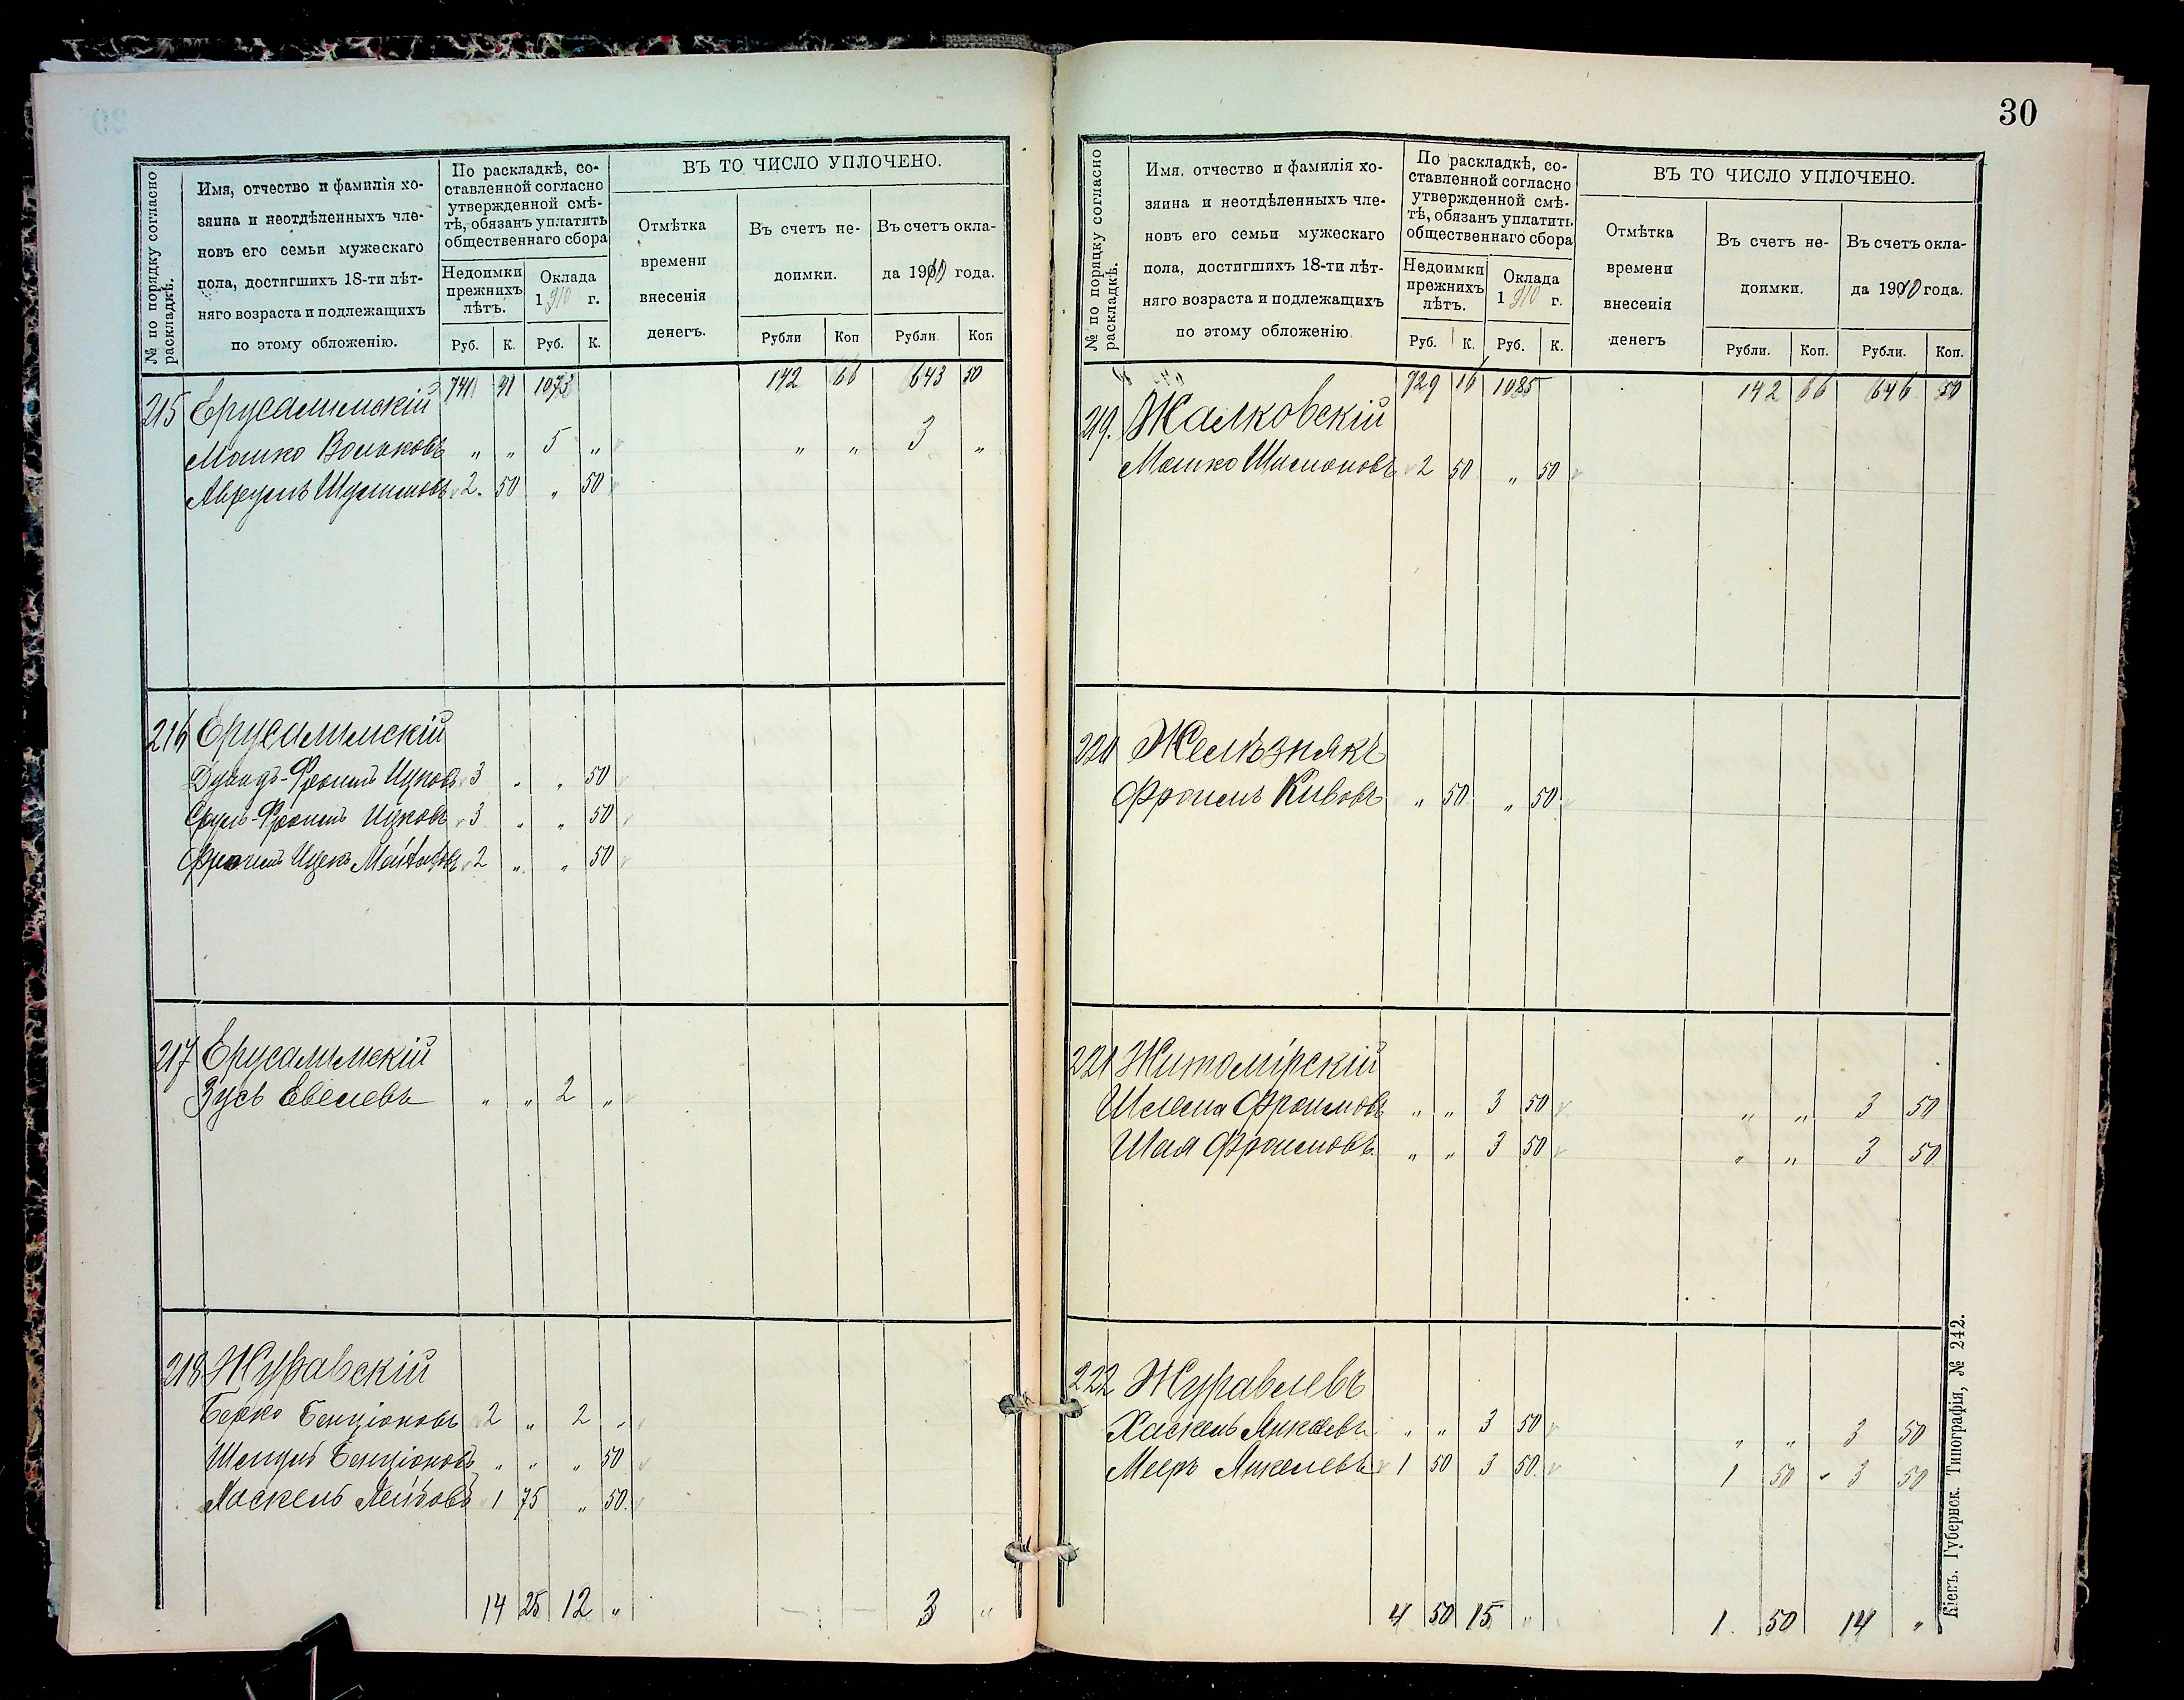 30
№ по порядку согласно раскладкѣ.
Имя, отчество и фамилія хозяина и неотдѣленныхъ членовъ его семьи мужескаго пола, достигшихъ 18-ти лѣтняго возраста и подлежащихъ по этому обложенію.
По раскладкѣ, составленной согласно утвержденной смѣтѣ, обязанъ уплатить общественнаго сбора
Недоимки прежнихъ лѣтъ.
Оклада 1910 г.
Руб. К. Руб. К.
ВЪ ТО ЧИСЛО УПЛОЧЕНО.
Отмѣтка времени внесенія денегъ.
Въ счетъ недоимки.
Въ счетъ оклада 1910 года.
Рубли Коп Рубли Коп
741 41 1073 142 66 643 50
215 Ерусалимскій
Мошко Вольковъ " " 5 " " " 3 "
Аврумъ Шулимовъ 2. 50 " 50
216 Ерусалимскій
Дувидъ-Фроимъ Ицковъ 3 " " 50
Сруль-Фроимъ Ицковъ 3 " " 50
Фроимъ Ицек 2 " " 50
217 Ерусалимскій
Зусь Евелевъ " " 2 "
218 Журавскій
Берко Бенціоновъ 2 " 2 "
Шендик Бенціоновъ " " " 50
Хаскель Лейбовъ 1 75 " 50.
14 25 12 " 3 "
№ по порядку согласно раскладкѣ.
Имя, отчество и фамилія хозяина и неотдѣленныхъ членовъ его семьи мужескаго пола, достигшихъ 18-ти лѣтняго возраста и подлежащихъ по этому обложенію
По раскладкѣ, составленной согласно утвержденной смѣтѣ, обязанъ уплатить общественнаго сбора
Недоимки прежнихъ лѣтъ.
Оклада 1910 г.
Руб. К. Руб. К.
ВЪ ТО ЧИСЛО УПЛОЧЕНО.
Отмѣтка времени внесенія денегъ
Въ счетъ недоимки.
Въ счетъ оклада 1910 года.
Рубли. Коп. Рубли. Коп.
729 16 1085 142 66 646 50
219. Жалковскій
Мошко Шимоновъ 2 50 " 50
220 Желѣзнякъ
Фроимъ Кивовъ " 50 " 50
221 Житомірскій
Шлема Фроимовъ " " 3 50 " " 3 50
Шая Фроимовъ " " 3 50 " " 3 50
222 Журавлевъ
Хаскель Янкелевъ " " 3 50 " " 3 50
Мееръ Янкелевъ 1 50 3 50 1 50 3 50
4 50 15 " 1. 50 14 "
Кіевъ. Губернск. Типографія, № 242.